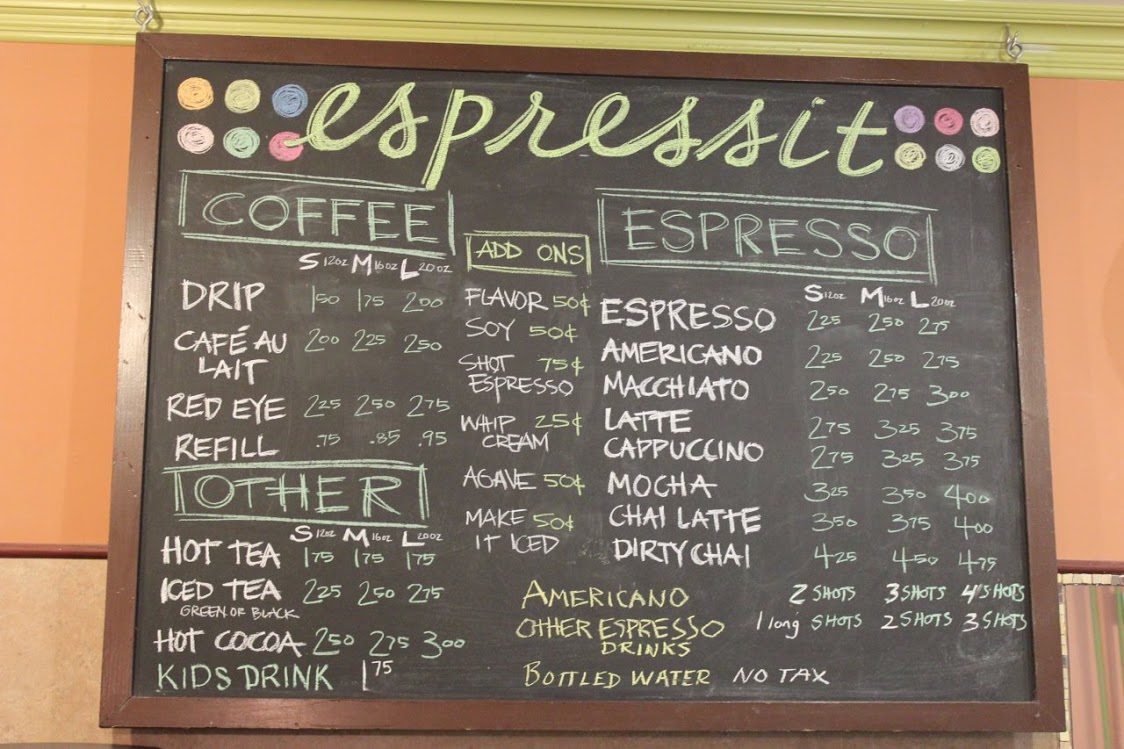 espressit
COFFEE
S 12oz M 16oz L 20oz
DRIP 150 175 200
CAFÉ AU 200 225 250
LAIT
RED EYE 225 250 275
REFILL .75 .85 .95
OTHER
S 12oz M 16oz L 20oz
HOT TEA 175 175 175
ICED TEA 225 250 275
GREEN OR BLACK
HOT COCOA 250 275 300
KIDS DRINK 175
ADD ONS
FLAVOR 50¢
SOY 50¢
SHOT 75¢
ESPRESSO
WHIP 25¢
CREAM
AGAVE 50¢
MAKE 50¢
IT ICED
ESPRESSO
S 12oz M 16oz L 20oz
ESPRESSO 225 250 275
AMERICANO 225 250 275
MACCHIATO 250 275 300
LATTE 275 325 375
CAPPUCCINO 275 325 375
MOCHA 325 350 400
CHAI LATTE 350 375 400
DIRTY CHAI 425 450 475
AMERICANO 2 SHOTS 3 SHOTS 4 SHOTS
OTHER ESPRESSO 1 long SHOTS 2 SHOTS 3 SHOTS
DRINKS
BOTTLED WATER NO TAX